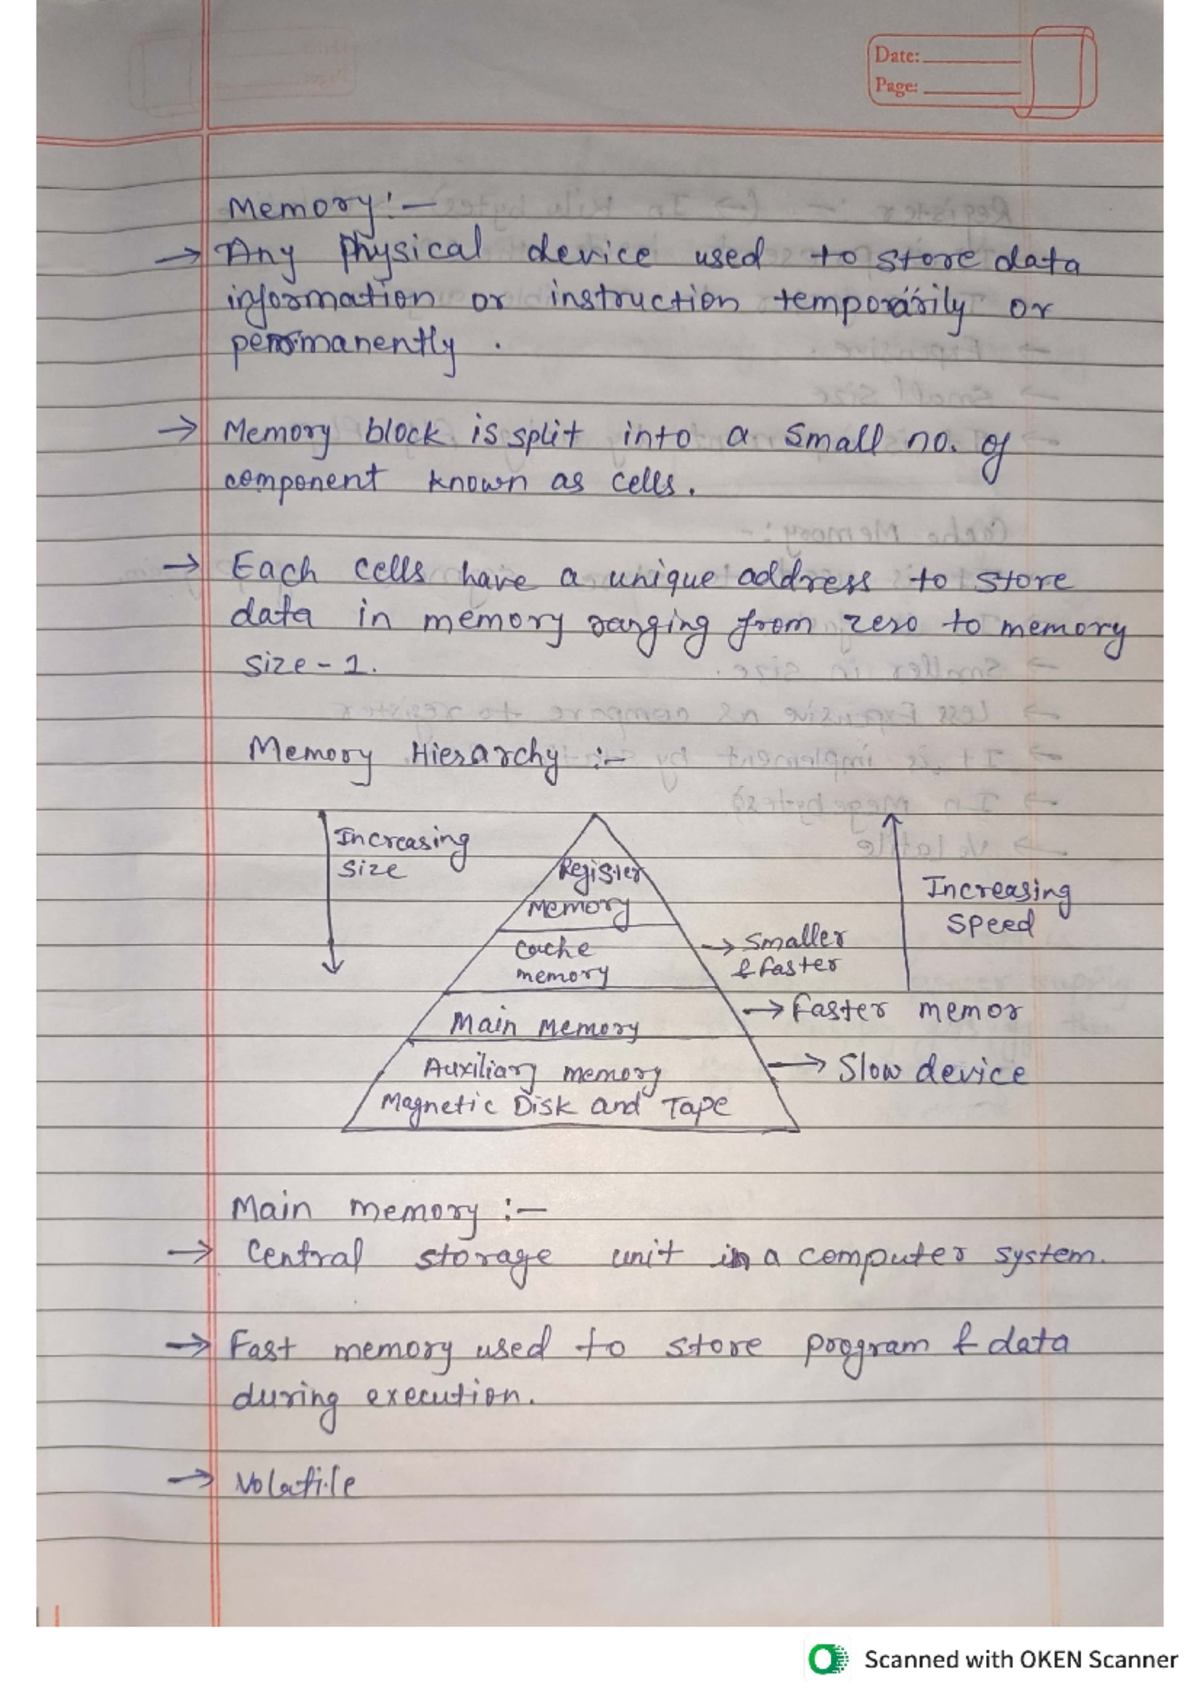 Date:
Page:
Memory:-
→ Any Physical device used to store data
information or instruction temporarily or
permanently .
→ Memory block is split into a small no. of
component known as cells.
→ Each cells have a unique address to store
data in memory ranging from zero to memory
size-1.
Memory Hierarchy :-
Increasing
size
Register
memory
Cache
memory
→ Smaller
& faster
Increasing
speed
Main Memory
→ Faster memor
Auxiliary memory
Magnetic Disk and Tape
→ Slow device
Main memory :-
→ Central storage unit in a computer system.
→ Fast memory used to store program & data
during execution.
→ Volatile
Scanned with OKEN Scanner